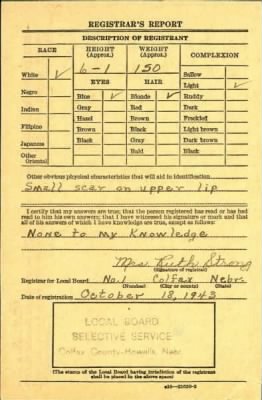 REGISTRAR'S REPORT
DESCRIPTION OF REGISTRANT
RACE HEIGHT (Approx.) WEIGHT (Approx.) COMPLEXION
6-1 150 Sallow
White ✓ EYES HAIR Light ✓
Blue ✓ Blonde ✓ Ruddy
Negro Gray Red Dark
Indian Hazel Brown Freckled
Filipino Brown Black Light brown
Japanese Black Gray Dark brown
Other Oriental Bald Black
Other obvious physical characteristics that will aid in identification
Small scar on upper lip
I certify that my answers are true; that the person registered has read or has had
read to him his own answers; that I have witnessed his signature or mark and that
all of his answers of which I have knowledge are true, except as follows:
None to my Knowledge
Mrs. Ruth Strong
(Signature of registrar)
Registrar for Local Board No. 1 Colfax Nebr.
(Number) (City or county) (State)
Date of registration October 18, 1943
LOCAL BOARD
SELECTIVE SERVICE
Colfax County-Howells, Nebr.
(The stamp of the Local Board having jurisdiction of the registrant
shall be placed in the above space)